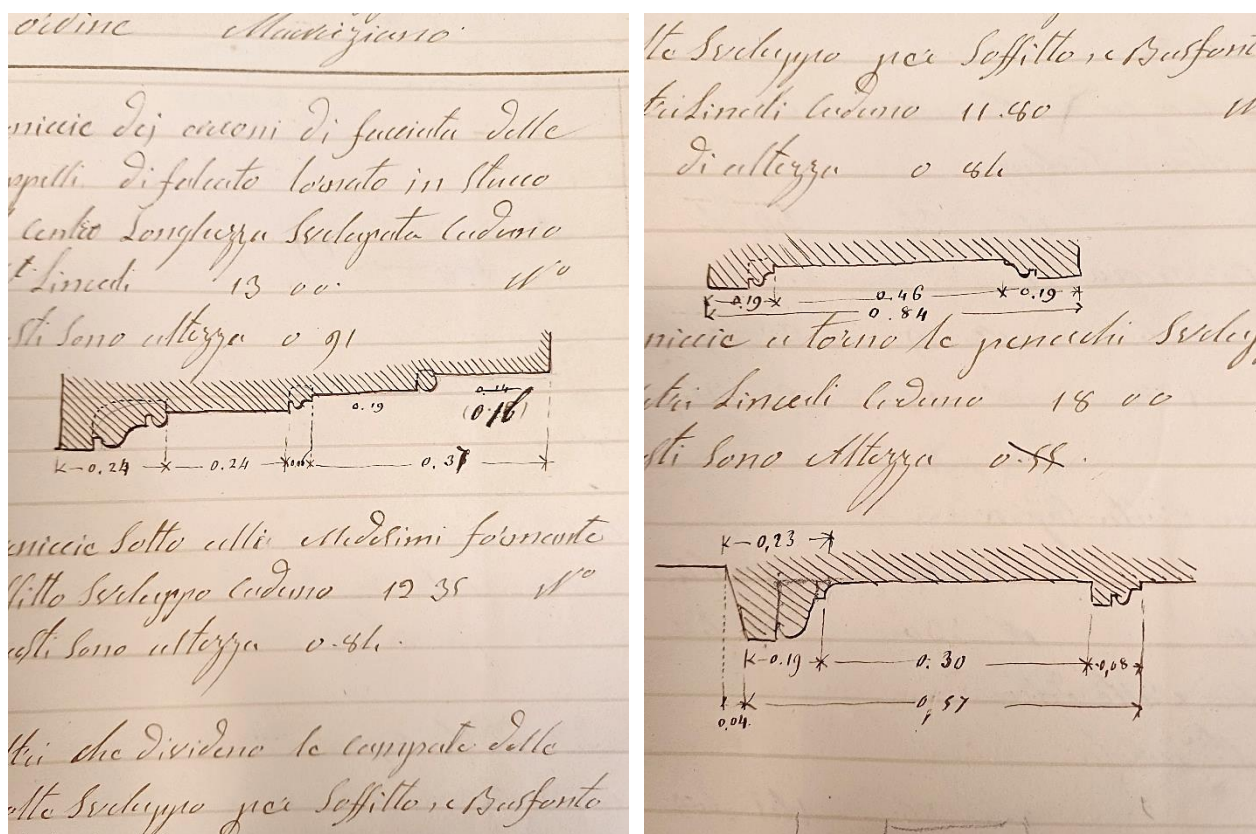 ordine Mauriziano.
niccie dej arconi di facciata delle
ppelli di falcato tornato in Stucco
Centro Longhezza Svilupata Caduno
t. Lineali 13 00. N°
sti Sono altezza 0 91
0.19
0.14
(0.16)
0.24
0.24
0.06
0.37
niccie Sotto alli Medesimi formante
ffitto Sviluppo Caduno 12 35 N°
sti Sono altezza 0.84.
che dividono le Campate delle
olte Sviluppo per Soffitto, e Basfonto
lte Sviluppo per Soffitto, e Basfont
tri Lineali Caduno 11.80 N
di altezza 0 84
0.19
0.46
0.19
0.84
niccie a torno le penacchi Svilu
tri Lineali Caduno 18 00
sti Sono Altezza 0.55.
0,23
0.19
0.30
0,08
0,57
0,04.